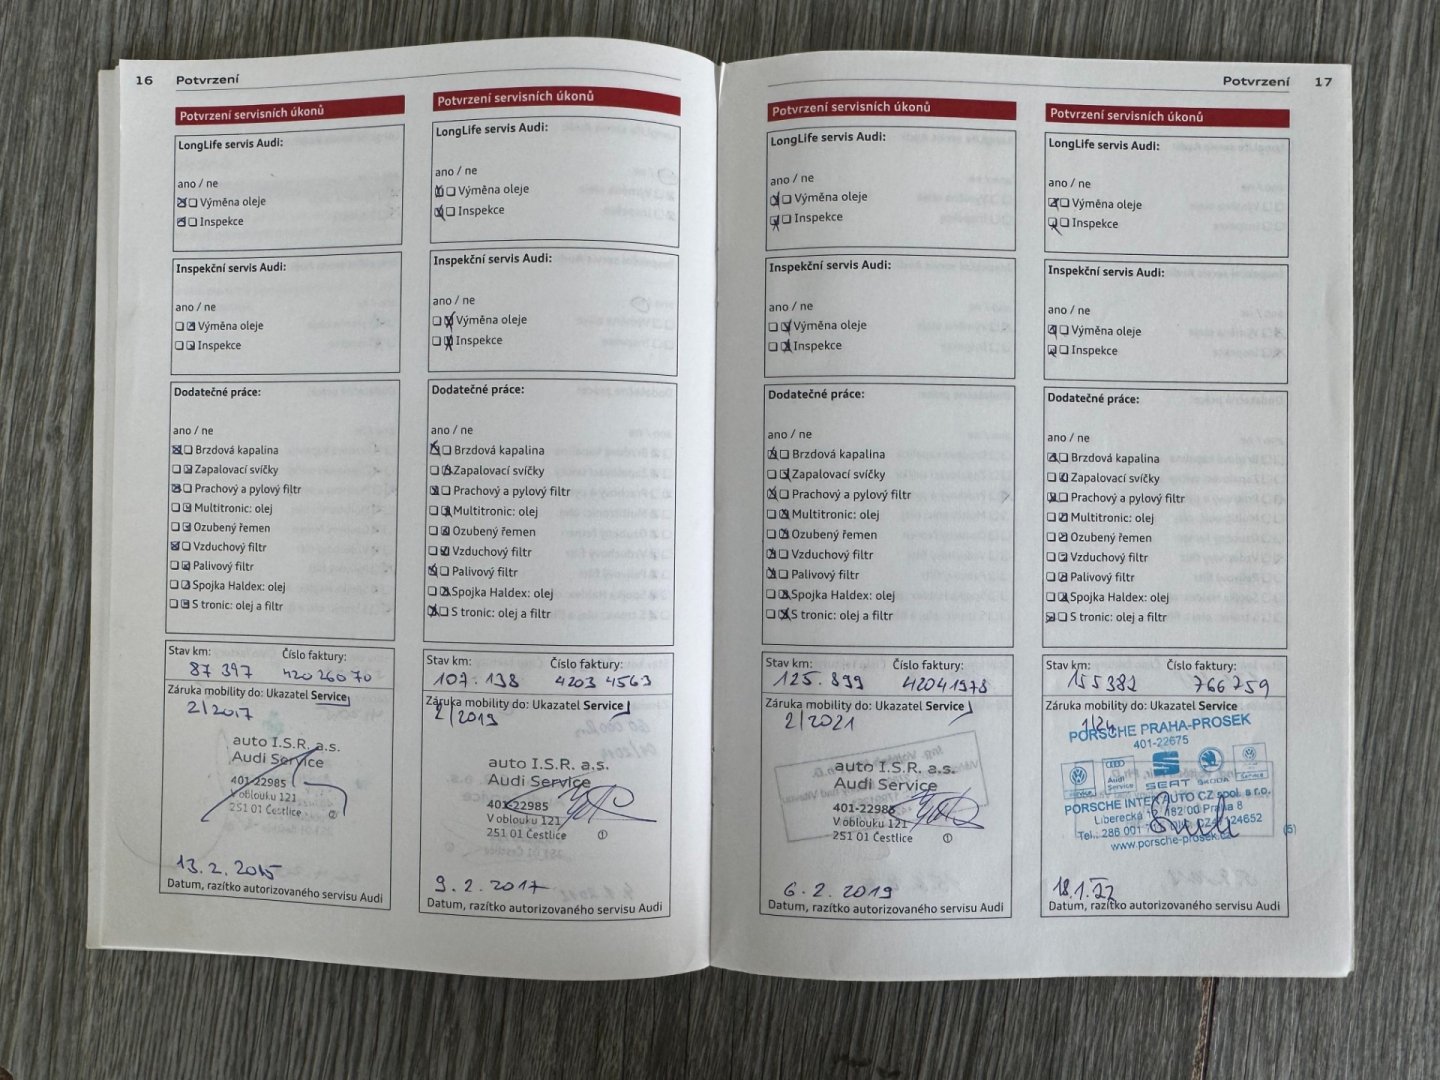 16 Potvrzení
Potvrzení servisních úkonů
LongLife servis Audi:
ano / ne
Výměna oleje
Inspekce
Inspekční servis Audi:
ano / ne
Výměna oleje
Inspekce
Dodatečné práce:
ano / ne
Brzdová kapalina
Zapalovací svíčky
Prachový a pylový filtr
Multitronic: olej
Ozubený řemen
Vzduchový filtr
Palivový filtr
Spojka Haldex: olej
S tronic: olej a filtr
Stav km: Číslo faktury:
87 397 420 260 70
Záruka mobility do: Ukazatel Service
2/2017
auto I.S.R. a.s.
Audi Service
401-22985
V oblouku 121
251 01 Čestlice
13. 2. 2015
Datum, razítko autorizovaného servisu Audi
Potvrzení servisních úkonů
LongLife servis Audi:
ano / ne
Výměna oleje
Inspekce
Inspekční servis Audi:
ano / ne
Výměna oleje
Inspekce
Dodatečné práce:
ano / ne
Brzdová kapalina
Zapalovací svíčky
Prachový a pylový filtr
Multitronic: olej
Ozubený řemen
Vzduchový filtr
Palivový filtr
Spojka Haldex: olej
S tronic: olej a filtr
Stav km: Číslo faktury:
107. 138 4203 4563
Záruka mobility do: Ukazatel Service
2/2019
auto I.S.R. a.s.
Audi Service
401-22985
V oblouku 121
251 01 Čestlice ①
9. 2. 2017
Datum, razítko autorizovaného servisu Audi
Potvrzení 17
Potvrzení servisních úkonů
LongLife servis Audi:
ano / ne
Výměna oleje
Inspekce
Inspekční servis Audi:
ano / ne
Výměna oleje
Inspekce
Dodatečné práce:
ano / ne
Brzdová kapalina
Zapalovací svíčky
Prachový a pylový filtr
Multitronic: olej
Ozubený řemen
Vzduchový filtr
Palivový filtr
Spojka Haldex: olej
S tronic: olej a filtr
Stav km: Číslo faktury:
125. 899 42041978
Záruka mobility do: Ukazatel Service
2/2021
auto I.S.R. a.s.
Audi Service
401-22985
V oblouku 121
251 01 Čestlice ①
6. 2. 2019
Datum, razítko autorizovaného servisu Audi
Potvrzení servisních úkonů
LongLife servis Audi:
ano / ne
Výměna oleje
Inspekce
Inspekční servis Audi:
ano / ne
Výměna oleje
Inspekce
Dodatečné práce:
ano / ne
Brzdová kapalina
Zapalovací svíčky
Prachový a pylový filtr
Multitronic: olej
Ozubený řemen
Vzduchový filtr
Palivový filtr
Spojka Haldex: olej
S tronic: olej a filtr
Stav km: Číslo faktury:
155 382 766 759
Záruka mobility do: Ukazatel Service
1/24
PORSCHE PRAHA-PROSEK
401-22675
Service Audi Service SEAT ŠKODA Service
PORSCHE INTER AUTO CZ spol. s r.o.
Liberecká 12, 182 00 Praha 8
Tel.: 286 001
www.porsche-prosek.cz
(5)
18.1.22
Datum, razítko autorizovaného servisu Audi